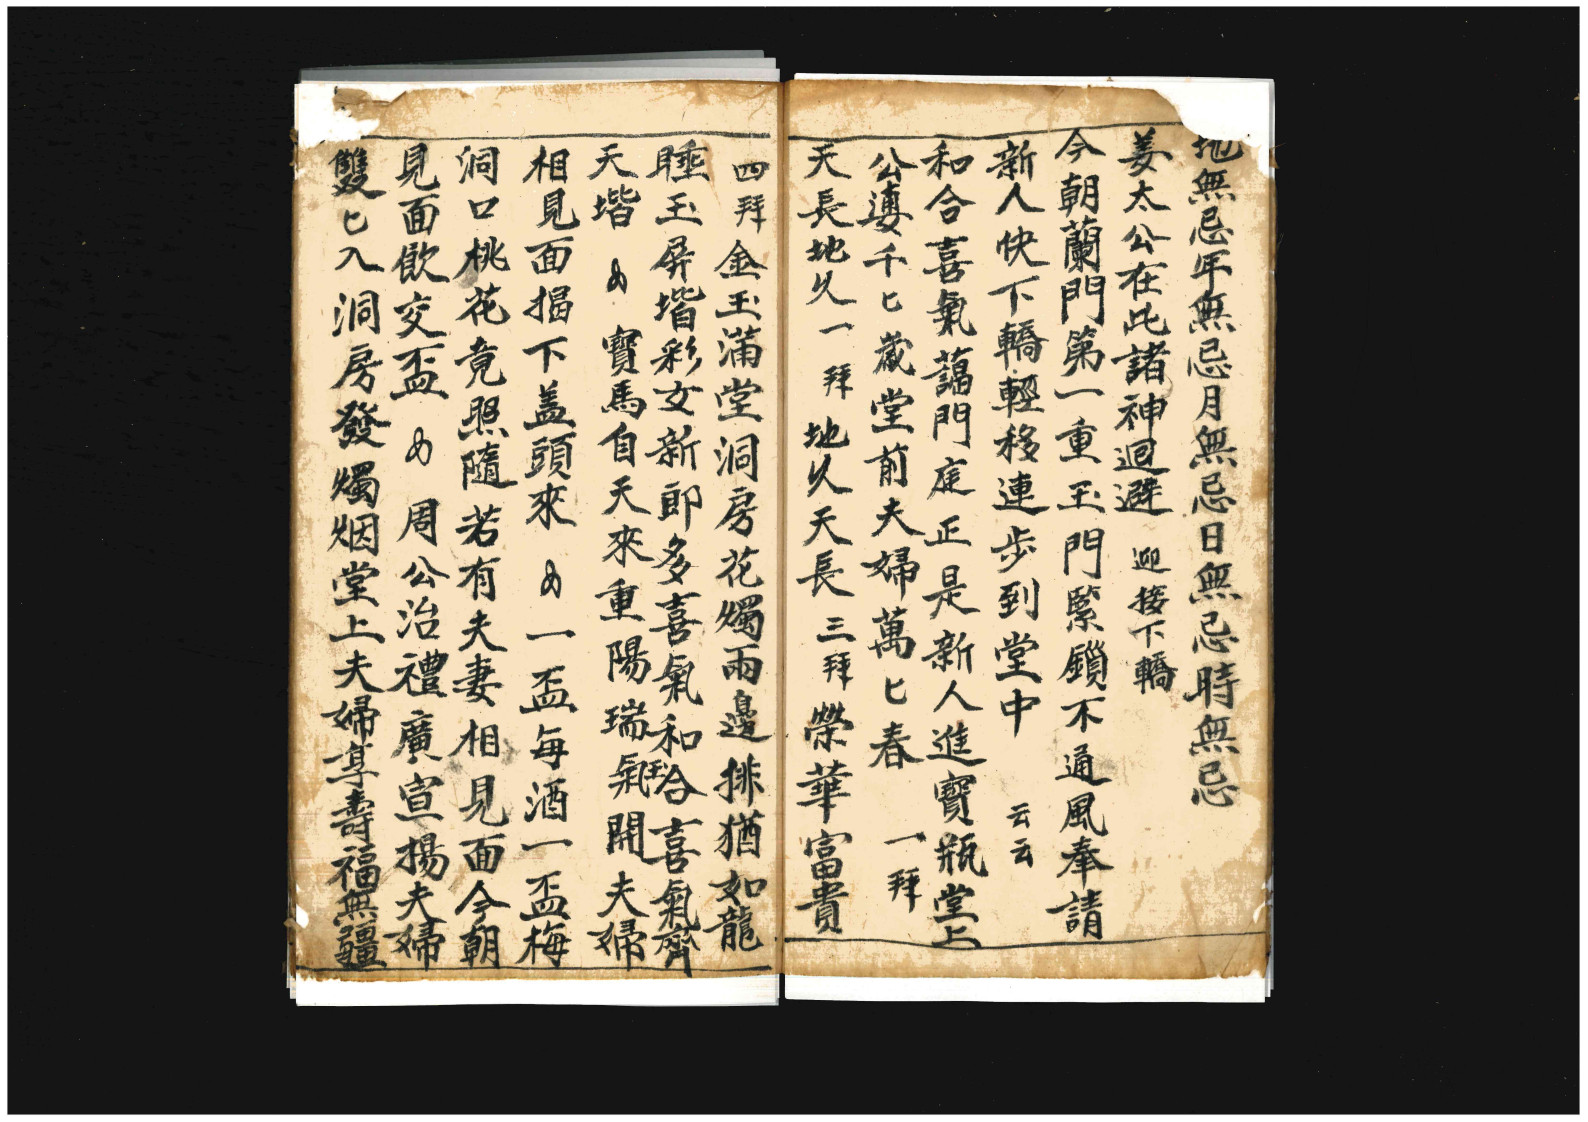 地無忌年無忌月無忌日無忌時無忌
姜太公在此諸神迴避 迎接下轎
今朝蘭門第一重玉門緊鎖不通風奉請
新人快下轎輕移連步到堂中 云云
和合喜氣藹門庭正是新人進寶瓶堂上
公婆千匕歲堂前夫婦萬匕春 一拜
天長地久一拜 地久天長 三拜 榮華富貴
四拜 金玉滿堂洞房花燭兩邊排猶如龍
睡玉屏堦彩女新郎多喜氣和合喜氣齊
天堦 又 寶馬自天來重陽瑞氣開夫婦
相見面揭下盖頭來 又 一盃每酒一盃梅
洞口桃花竟照隨若有夫妻相見面今朝
見面飲交盃 又 周公治禮廣宣揚夫婦
雙匕入洞房發燭烟堂上夫婦享壽福無疆